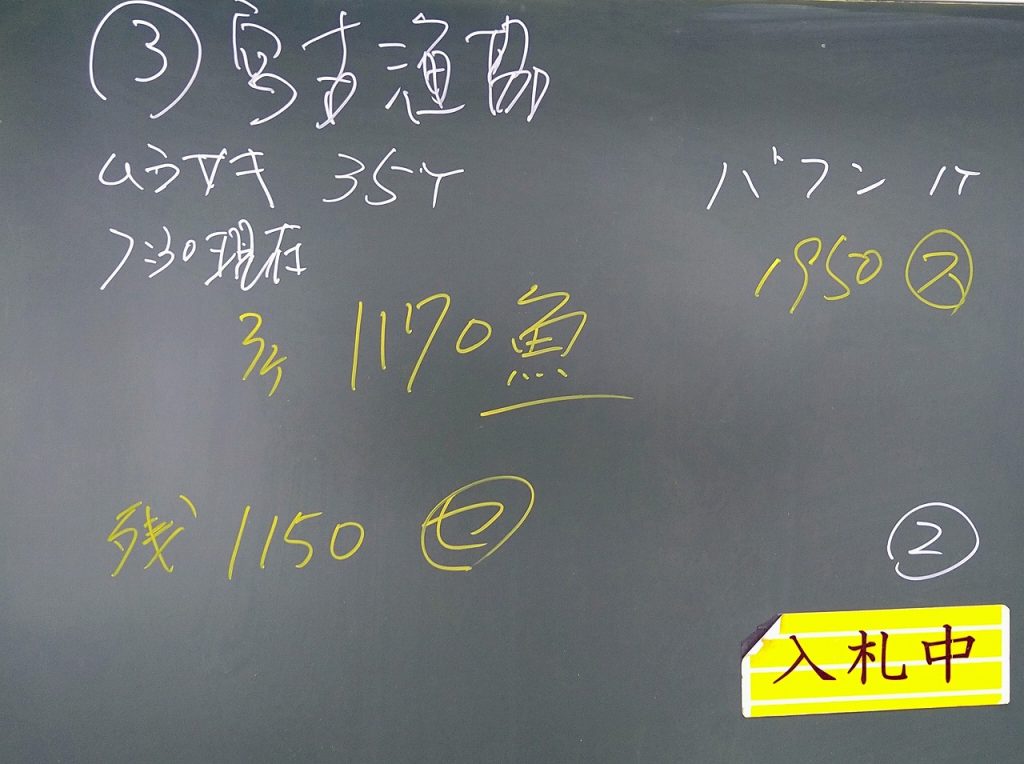 ③
ムラサキ 35ケ
バフン 1ケ
7:30現在
1950 ㋜
3ケ 1170 魚
残 1150 ㋝
②
入札中